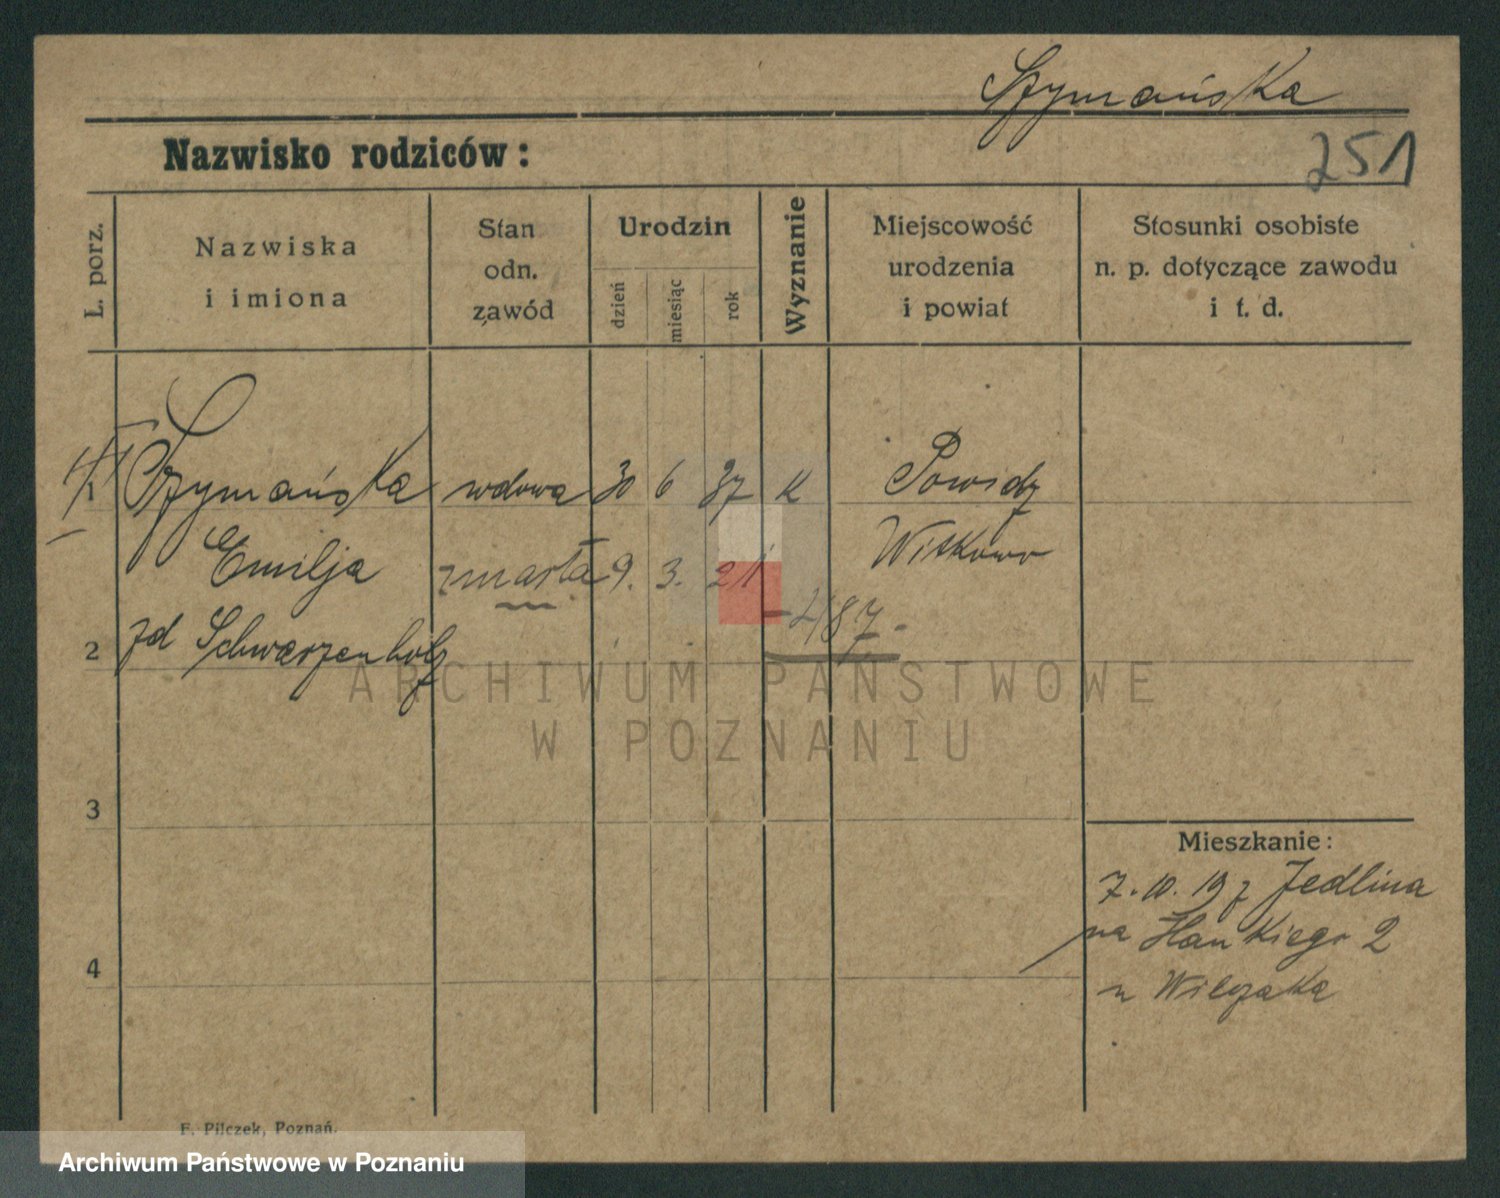 Szymańska
251
Nazwisko rodziców:
L. porz.
Nazwiska
i imiona
Stan
odn.
zawód
Urodzin
dzień
miesiąc
rok
Wyznanie
Miejscowość
urodzenia
i powiat
Stosunki osobiste
n. p. dotyczące zawodu
i t. d.
1 Szymańska wdowa 30 6 37 K Powidz
Emilja zmarła 9. 3. 21 Witkowo
487.
2 zd Schwarzenholz
ARCHIWUM PAŃSTWOWE
W POZNANIU
3
Mieszkanie:
7. 10. 19 z Jedlina
na Hankiego 2
4
u Wilczaka
F. Pilczek, Poznań.
Archiwum Państwowe w Poznaniu